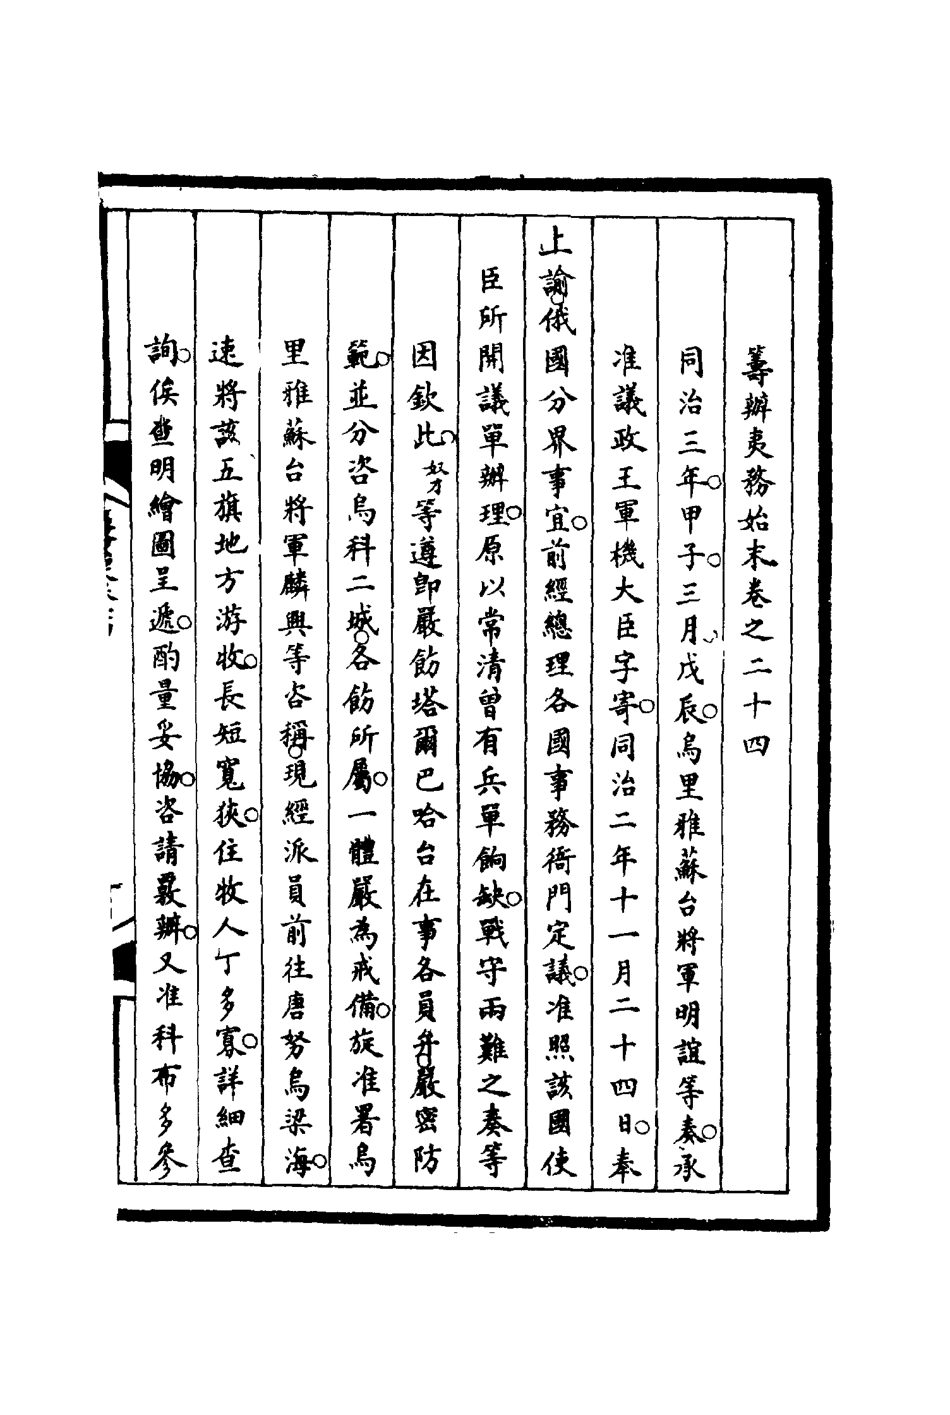 籌辦夷務始末卷之二十四
同治三年。甲子。三月。戊辰。烏里雅蘇台將軍明誼等奏。承
准議政王軍機大臣字寄。同治二年十一月二十四日。奉
上諭。俄國分界事宜。前經總理各國事務衙門定議。准照該國使
臣所開議單辦理。原以常清曾有兵單餉缺。戰守兩難之奏等
因欽此。奴才等遵即嚴飭塔爾巴哈台在事各員弁。嚴密防
範。並分咨烏科二城。各飭所屬。一體嚴為戒備。旋准署烏
里雅蘇台將軍麟興等咨稱。現經派員前往唐努烏梁海。
速將該五旗地方游牧。長短寬狹。住牧人丁多寡。詳細查
詢。俟查明繪圖呈遞。酌量妥協。咨請覈辦。又准科布多參